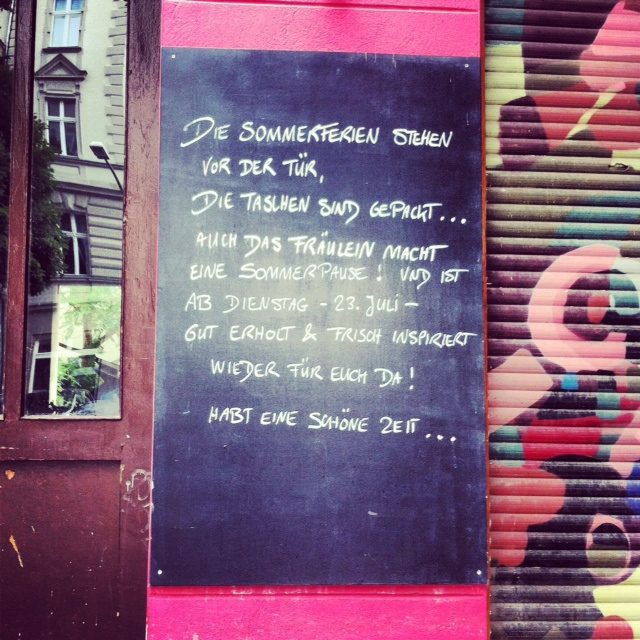 DIE SOMMERFERIEN STEHEN
VOR DER TÜR,
DIE TASCHEN SIND GEPACKT...
AUCH DAS FRÄULEIN MACHT
EINE SOMMERPAUSE! UND IST
AB DIENSTAG - 23. JULI -
GUT ERHOLT & FRISCH INSPIRIERT
WIEDER FÜR EUCH DA!
HABT EINE SCHÖNE ZEIT...